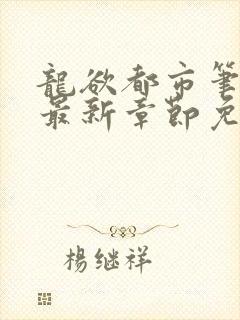 龍欲都市筆
最新章節免
楊继祥